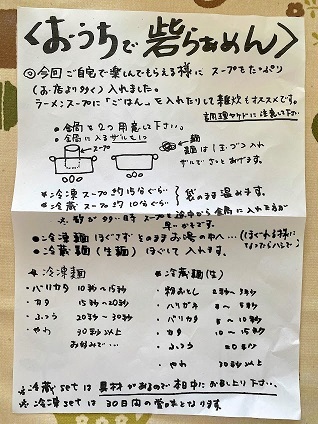 〈おうちで 砦らぁめん〉
◎今回 ご自宅で楽しんでもらえる様に スープをたっぷり
(お店より多く) 入れました。
ラーメンスープに「ごはん」を入れたりして雑炊もオススメです。
調理ヤケドに注意して下さい
●鍋を2つ用意して下さい。
●鍋に入るザルも1つ
スープ
麺
麺は1玉づつ入れ
ザルでさっとあげます。
*冷凍スープ 約15分ぐらい
*冷蔵スープ 約10分ぐらい
袋のまま温めます。
スープを途中から鍋に入れるが
早いかもです。
●冷凍麺 ほぐさず そのままお湯の中へ…(ほぐれる様に
なったらハシで)
●冷蔵麺(生麺) ほぐして入れます。
*冷凍麺
・バリカタ 10秒〜15秒
・カタ 15秒〜20秒
・ふつう 20秒〜30秒
・やわ 30秒以上
お好みで…
*冷蔵麺(生)
・粉おとし 2秒〜3秒
・ハリガネ
・バリカタ
・カタ 10〜15秒
・ふつう
・やわ 30秒以上
※冷蔵setは 具材があるので
※冷凍setは 30日間の賞味となります。